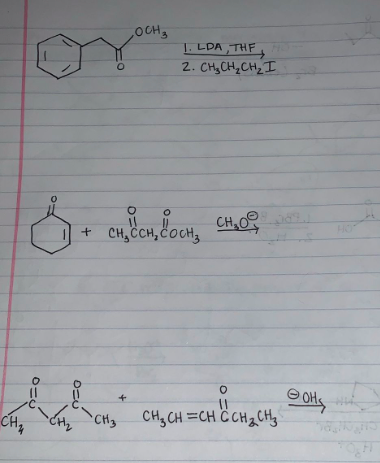 OCH3
O
1. LDA, THF
2. CH3CH2CH2I
O
+
O O
CH3CCH2COCH3
CH3O⊖
O O
CH3 CH2 CH3
+
O
CH3CH=CHCCH2CH3
⊖OH